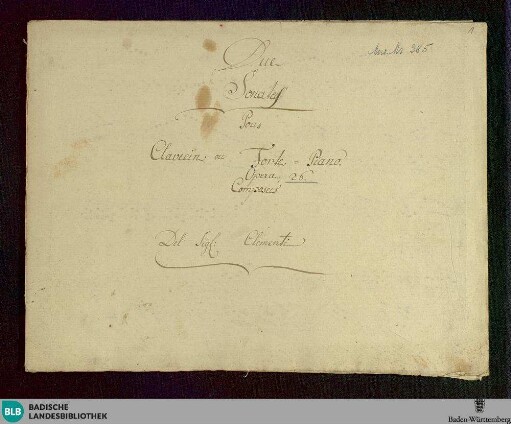 1
Mus. Ms. 285
Due
Sonates
Pour
Clavecin ou Forte-Piano.
Opera 26.
Composées
Del Sigl: Clementi
BLB BADISCHE
LANDESBIBLIOTHEK
Baden-Württemberg